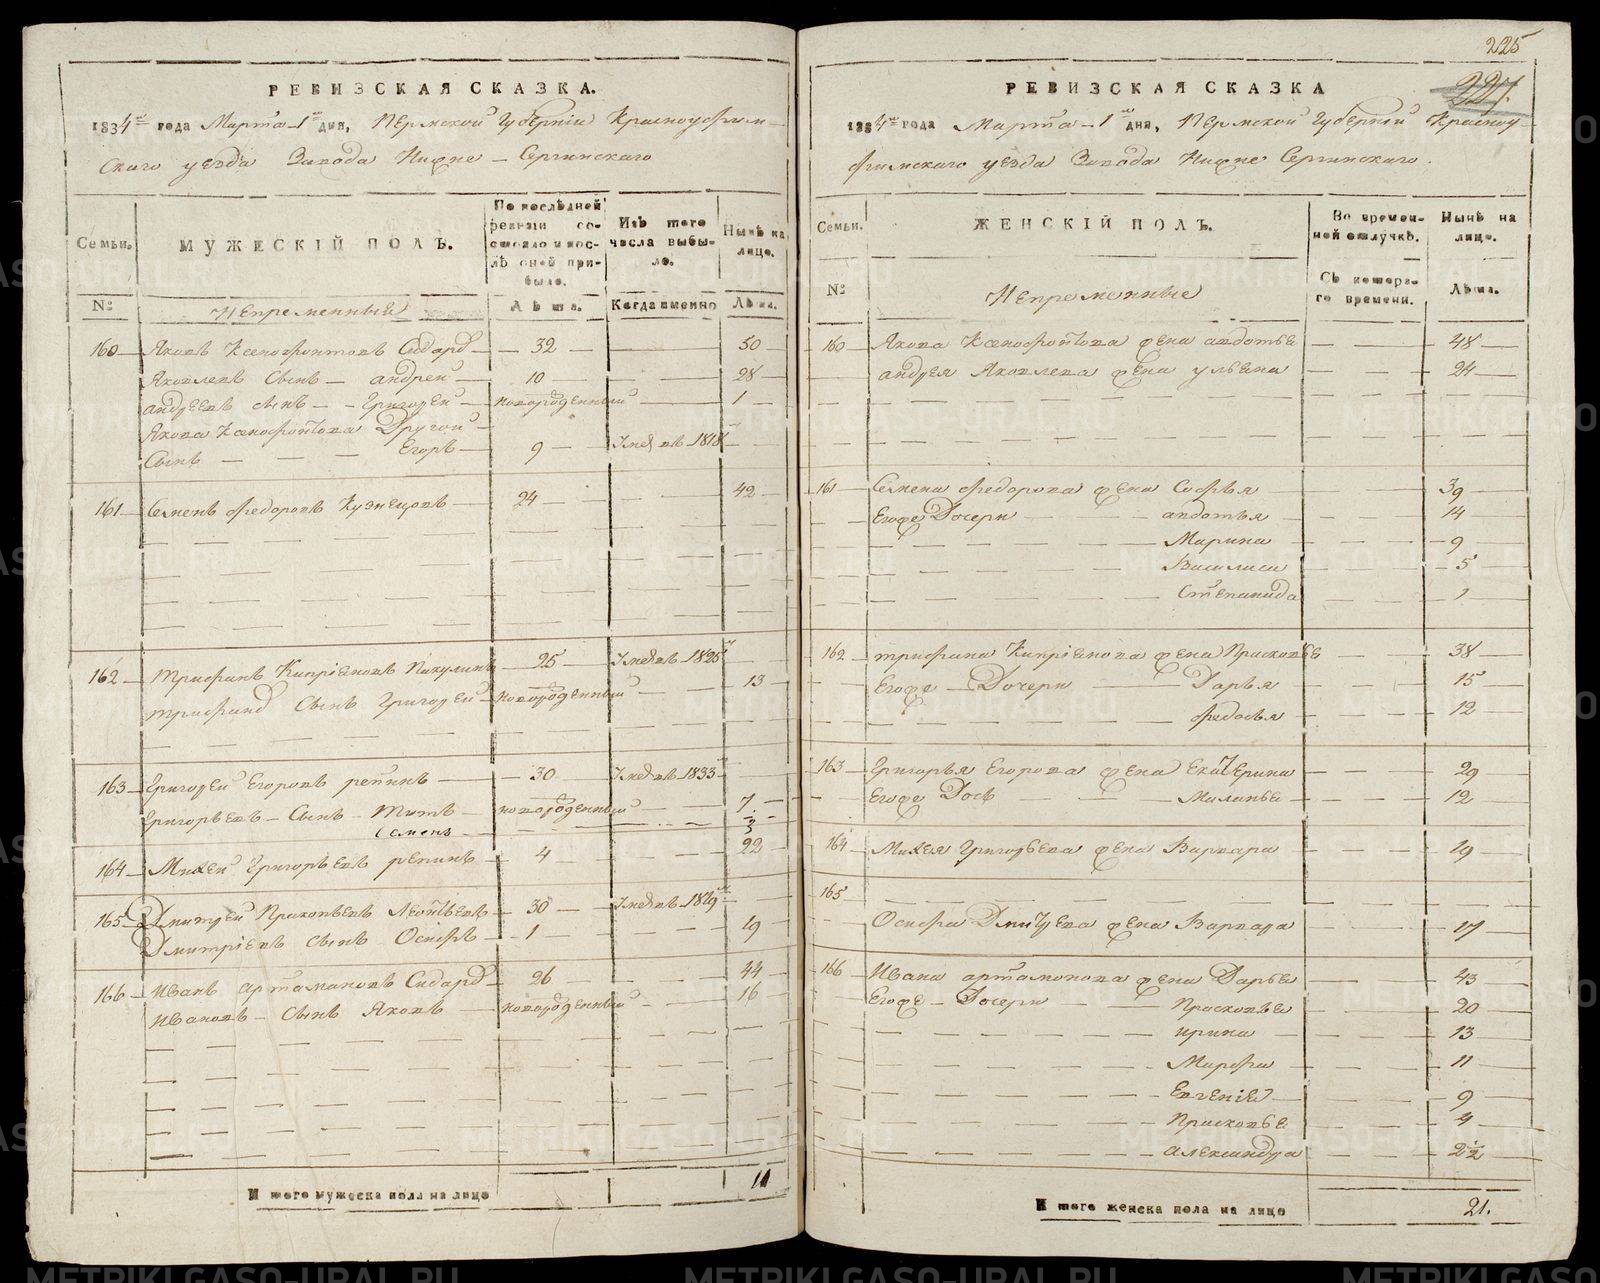 РЕВИЗСКАЯ СКАЗКА.
1834го года Марта 1го дня, Пермской Губерніи Красноуфим-
скаго уезда Завода Нижне-Сергинскаго
Семьи.
МУЖЕСКІЙ ПОЛЪ.
По послѣдней ревизіи состояло и послѣ оной прибыло.
Изъ того числа выбыло.
Нынѣ на лице.
№
Непременный
Лѣта.
Когда именно
Лѣта.
160 Яковъ Ксенофонтовъ Сидард 32 50
Яковлевъ Сынъ андрей 10 28
андреевъ сынъ Григорей новорожденный 1
Якова Ксенофонтова Другой
Сынъ Егоръ 9 Умеръ въ 1818
161 Семенъ Федоровъ Кузнецовъ 24 42
162 Трифанъ Кипріеновъ Пикулинъ 25 Умеръ въ 1825
Трифана Сынъ Григорей новорожденный 13
163 Григорей Егоровъ репинъ 30 Умеръ въ 1833
Григорьевъ Сынъ Титъ новорожденный 7
Семенъ 3
164 Михеи Григорьевъ репинъ 4 22
165 Дмитрей Прокопьевъ Леонтьевъ 30 Умеръ въ 1819
Дмитріевъ сынъ Осифъ 1 19
166 Иванъ артамоновъ Сидард 26 44
Ивановъ Сынъ Яковъ новорожденный 16
И того мужеска пола на лицо 11
225
221.
РЕВИЗСКАЯ СКАЗКА
1834го года Марта 1го дня, Пермской Губерніи Красноу-
фимскаго уезда Завода Нижне Сергинскаго.
Семьи.
ЖЕНСКІЙ ПОЛЪ.
Во временной отлучкѣ.
Нынѣ на лице.
№
Непременные
Съ котораго времени.
Лѣта.
160 Якова Ксенофонтова жена авдотье 48
андрея Яковлева жена ульена 24
161 Семена Федорова жена Софья 39
Егоже Дочери авдотья 14
Марина 9
Василиса 5
Степанида 1
162 Трифана Кипріенова жена Прасковье 38
Егоже Дочери Дарья 15
Федосья 12
163 Григорья Егорова жена Екатерина 29
Егоже Дочь Маланье 12
164 Михея Григорьева жена Варвара 19
165
Осифа Дмитрева жена Варвара 17
166 Ивана артамонова жена Дарье 43
Егоже Дочери Прасковье 20
ирина 13
Марфа 11
Евгеніе 9
Прасковье 4
александра 2½
И того женска пола на лицо 21.
METRIKI.GASO-URAL.RU